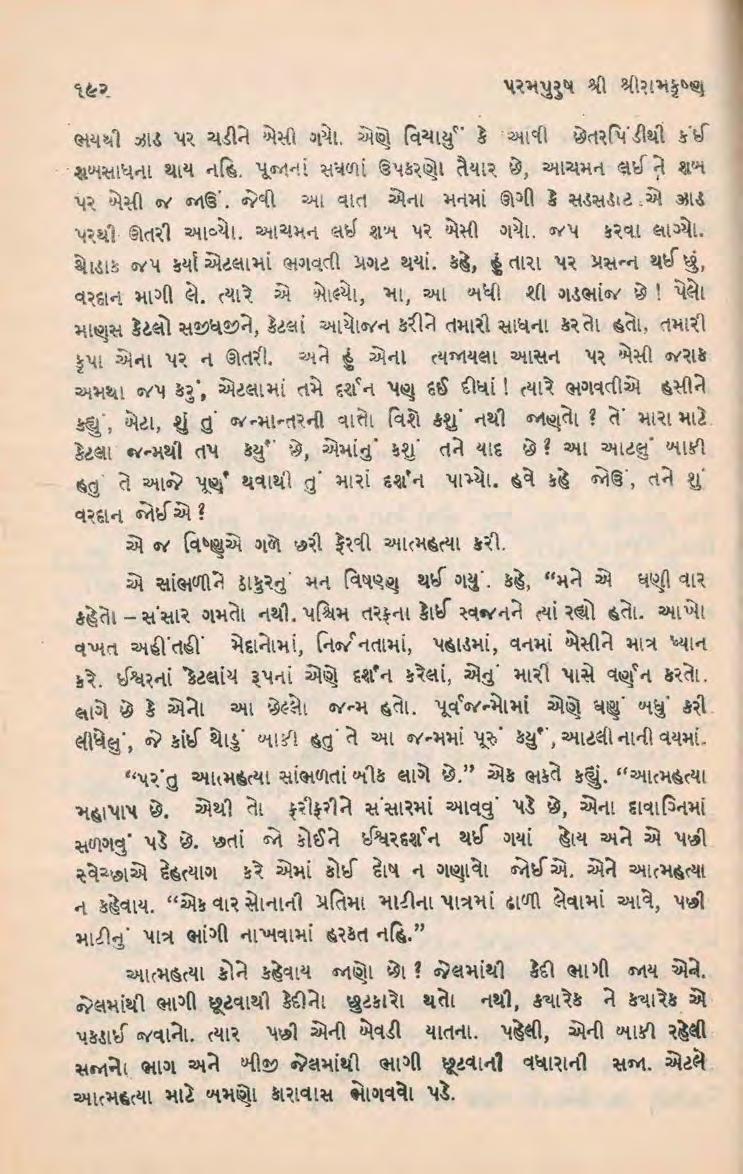 ૧૯૨ પરમપુરુષ શ્રી શ્રીરામકૃષ્ણ
ભયથી ઝાડ પર ચડીને બેસી ગયો. એણે વિચાર્યું કે આવી છેતરપિંડીથી કંઈ
શબસાધના થાય નહિ. પૂજાનાં સઘળાં ઉપકરણો તૈયાર છે, આચમન લઈ તે શબ
પર બેસી જ જાઉં. જેવી આ વાત એના મનમાં ઊગી કે સડસડાટ એ ઝાડ
પરથી ઊતરી આવ્યો. આચમન લઈ શબ પર બેસી ગયો. જપ કરવા લાગ્યો.
થોડાક જપ કર્યા એટલામાં ભગવતી પ્રગટ થયાં. કહે, હું તારા પર પ્રસન્ન થઈ છું,
વરદાન માગી લે. ત્યારે એ બોલ્યો, મા, આ બધી શી ગડભાંજ છે ! પેલો
માણસ કેટલો સજીધજીને, કેટલાં આયોજન કરીને તમારી સાધના કરતો હતો, તમારી
કૃપા એના પર ન ઊતરી. અને હું એના ત્યજાયલા આસન પર બેસી જરાક
અમથા જપ કરું, એટલામાં તમે દર્શન પણ દઈ દીધાં ! ત્યારે ભગવતીએ હસીને
કહ્યું, બેટા, શું તું જન્માન્તરની વાતો વિશે કશું નથી જાણતો ? તેં મારા માટે
કેટલા જન્મથી તપ કર્યું છે, એમાંનું કશું તને યાદ છે ? આ આટલું બાકી
હતું તે આજે પૂર્ણ થવાથી તું મારાં દર્શન પામ્યો. હવે કહે જોઉં, તને શું
વરદાન જોઈએ ?
એ જ વિષ્ણુએ ગળે છરી ફેરવી આત્મહત્યા કરી.
એ સાંભળીને ઠાકુરનું મન વિષણ્ણ થઈ ગયું. કહે, “મને એ ઘણી વાર
કહેતો – સંસાર ગમતો નથી. પશ્ચિમ તરફના કોઈ સ્વજનને ત્યાં રહ્યો હતો. આખો
વખત અહીંતહીં મેદાનોમાં, નિર્જનતામાં, પહાડમાં, વનમાં બેસીને માત્ર ધ્યાન
કરે. ઈશ્વરનાં કેટલાંય રૂપનાં એણે દર્શન કરેલાં, એનું મારી પાસે વર્ણન કરતો.
લાગે છે કે એનો આ છેલ્લો જન્મ હતો. પૂર્વજન્મોમાં એણે ઘણું બધું કરી
લીધેલું, જે કાંઈ થોડું બાકી હતું તે આ જન્મમાં પૂરું કર્યું, આટલી નાની વયમાં.
“પરંતુ આત્મહત્યા સાંભળતાં બીક લાગે છે.” એક ભક્તે કહ્યું. “આત્મહત્યા
મહાપાપ છે. એથી તો ફરીફરીને સંસારમાં આવવું પડે છે, એના દાવાગ્નિમાં
સળગવું પડે છે. છતાં જો કોઈને ઈશ્વરદર્શન થઈ ગયાં હોય અને એ પછી
સ્વેચ્છાએ દેહત્યાગ કરે એમાં કોઈ દોષ ન ગણાવો જોઈએ. એને આત્મહત્યા
ન કહેવાય. “એક વાર સોનાની પ્રતિમા માટીના પાત્રમાં ઢાળી લેવામાં આવે, પછી
માટીનું પાત્ર ભાંગી નાખવામાં હરકત નહિ.”
આત્મહત્યા કોને કહેવાય જાણો છો ? જેલમાંથી કેદી ભાગી જાય એને.
જેલમાંથી ભાગી છૂટવાથી કેદીનો છુટકારો થતો નથી, કયારેક ને કયારેક એ
પકડાઈ જવાનો. ત્યાર પછી એની બેવડી યાતના. પહેલી, એની બાકી રહેલી
સજાનો ભાગ અને બીજી જેલમાંથી ભાગી છૂટવાની વધારાની સજા. એટલે
આત્મહત્યા માટે બમણો કારાવાસ ભોગવવો પડે.